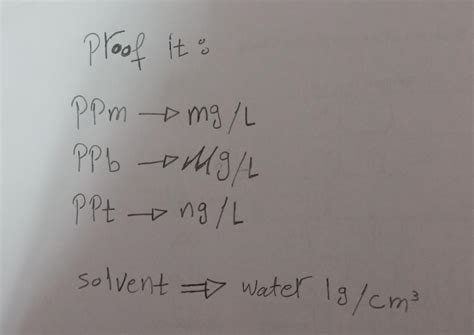 Proof it:
PPm → mg/L
PPb → Mg/L
PPt → ng/L
solvent ⇒ water 1g/cm³